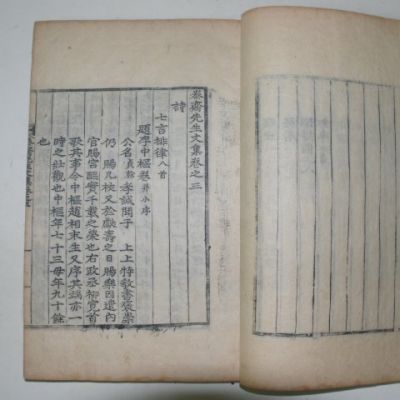 春齋先生文集卷之三
詩
七言排律八首
題李中樞卷幷小序
公名貞幹 孝誠聞于 上上特敎書褒崇
仍 賜几杖又於獻壽之日 賜樂因遣內
官賜宮醞實千載之榮也右政丞柳寬首
歌其事令中樞趙相末生又序其端亦一
時之壯觀也中樞年七十三母年九十餘
也